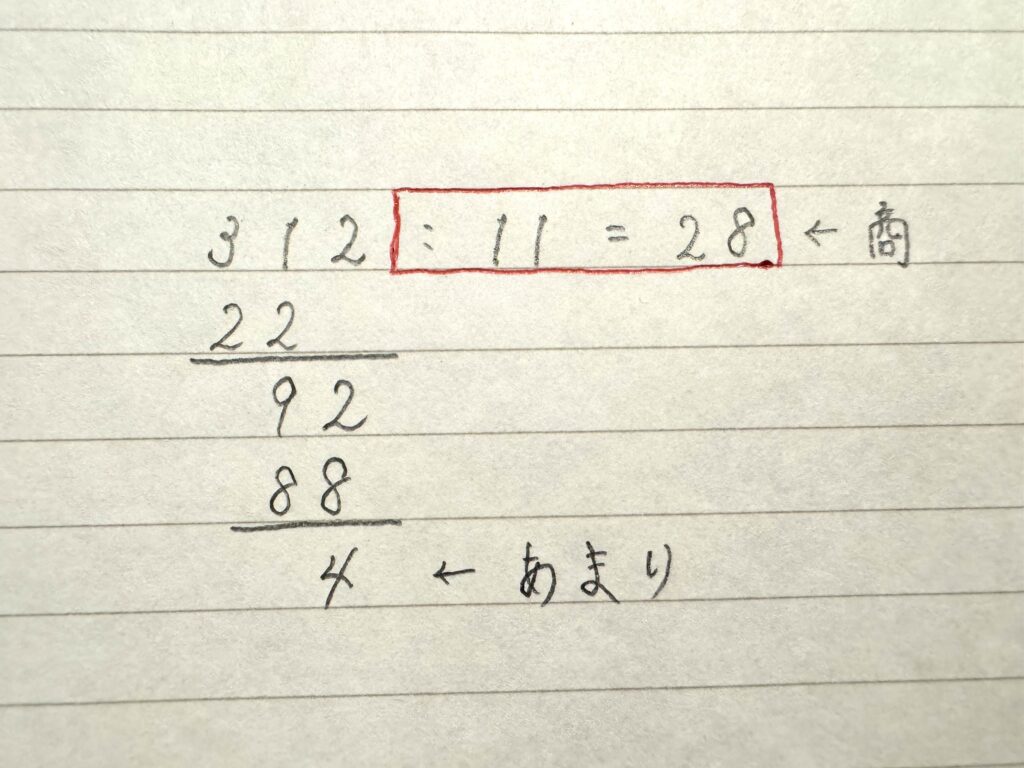 312 : 11 = 28 ← 商
22
92
88
4 ← あまり